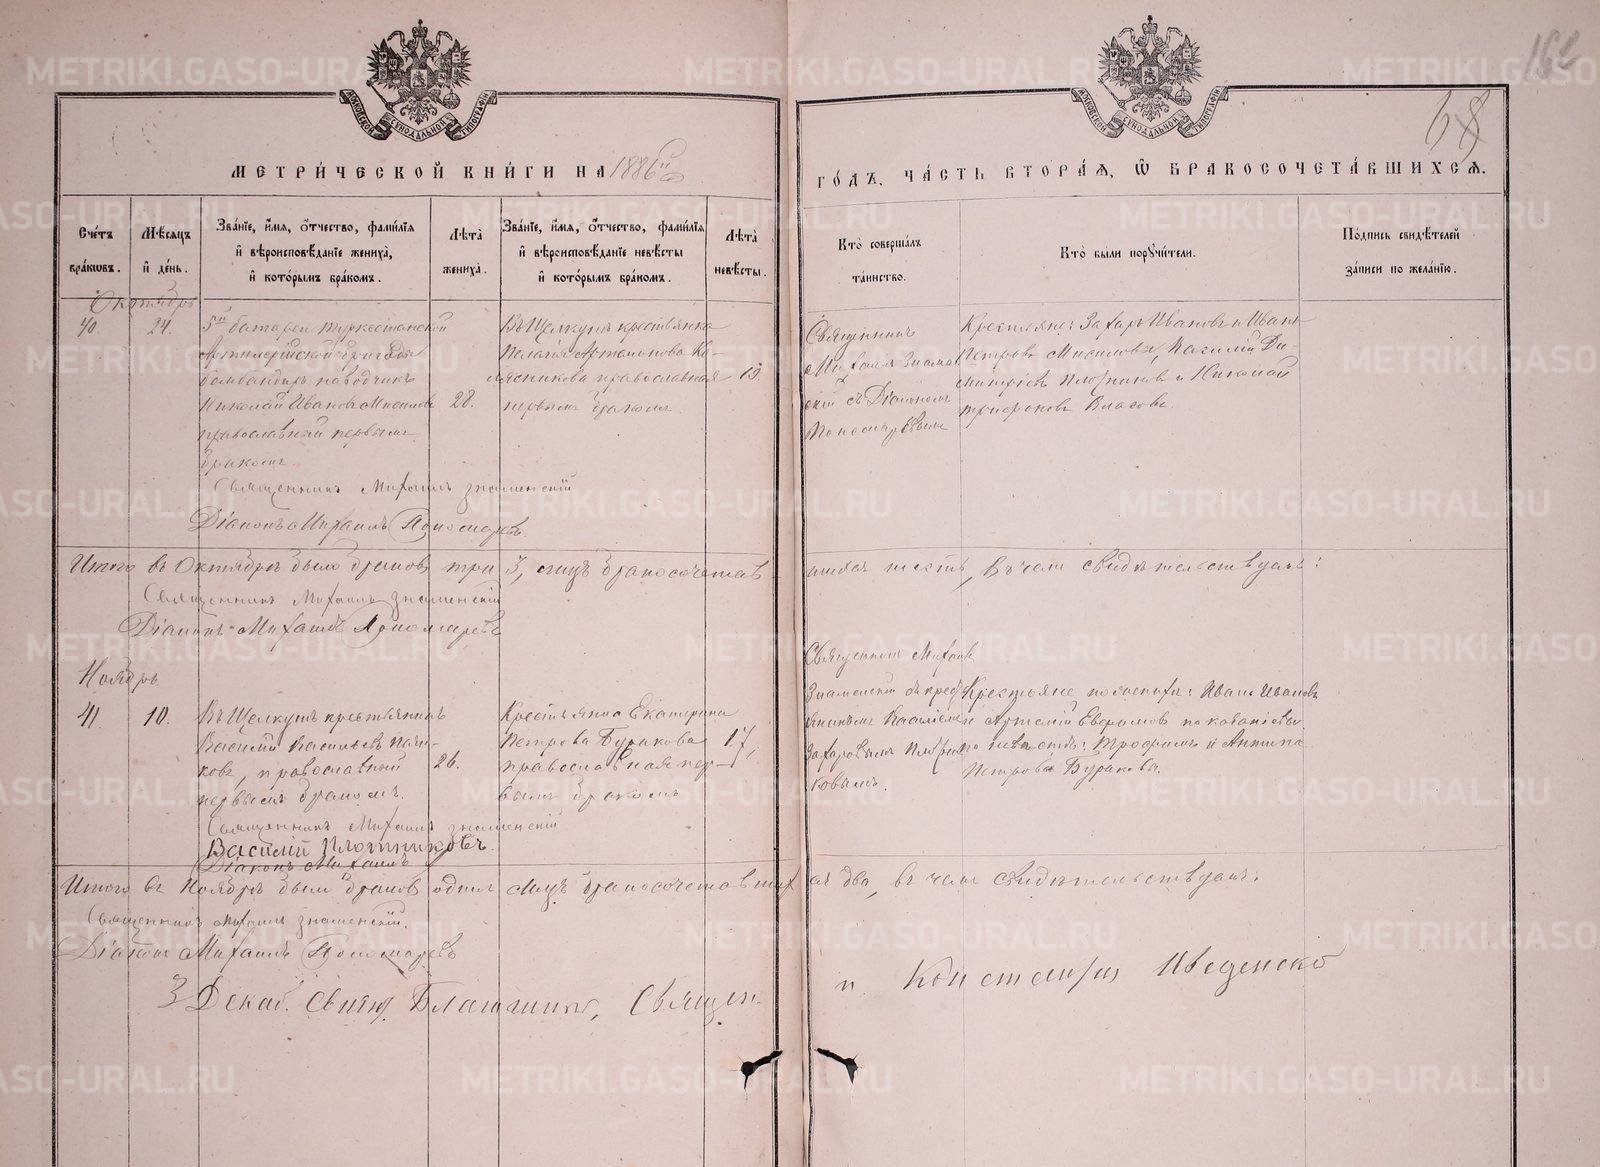 МОСКОВСКОЙ СѴНОДАЛЬНОЙ ТИПОГРАФІИ
МОСКОВСКОЙ СѴНОДАЛЬНОЙ ТИПОГРАФІИ
68
МЕТРИ́ЧЕСКОЙ КНИ́ГИ НА 1886й
ГО́ДЪ, ЧА́СТЬ ВТОРА́Я, Ѽ БРАКОСОЧЕТА́ВШИХСЯ.
Сче́тъ бра́кѡвъ.
Мѣ́сяцъ и҆ де́нь.
Зва́нїе, и҆́мя, ѻ҆́тчество, фами́лїя
и҆ вѣроисповѣ́данїе жениха̀,
и҆ кото́рымъ бра́комъ.
Лѣта̀ жениха̀.
Зва́нїе, и҆́мя, ѻ҆́тчество, фами́лїя
и҆ вѣроисповѣ́данїе невѣ́сты
и҆ кото́рымъ бра́комъ.
Лѣта̀ невѣ́сты.
Кто̀ соверша́лъ та́инство.
Кто̀ бы́ли порꙋчи́тели.
По́дпись свидѣ́телей
за́писи по жела́нїю.
Октябрь
40. 24.
5й батареи Туркестанской
Артилерійской бригады
бомбандиръ наводчикъ
Николай Ивановъ
православный первымъ
бракомъ.
28.
Въ Щелкунъ крестьянка
Пелагія Артамонова Ко-
лясникова православная
первымъ бракомъ.
19.
Священникъ
Михаилъ Знамен
скій съ Діакономъ
Пономаревымъ
Крестьяне: Захаръ Ивановъ и Иванъ
Петровъ Василій Ди-
митріевъ Плотниковъ и Николай
Трифоновъ Власовъ.
Священникъ Михаилъ Знаменскій
Діаконъ Михаилъ Пономаревъ
Итого въ Октябрѣ было браковъ три 3, лицъ бракосочетав-
шихся шесть, въ чемъ свидѣтельствуемъ:
Священникъ Михаилъ Знаменскій
Діаконъ Михаилъ Пономаревъ
Ноябрь.
41. 10.
Въ Щелкунъ крестьянинъ
Василій Васильевъ
православный
первымъ бракомъ.
26.
Крестьянка Екатерина
Петрова Буракова
православная пер-
вымъ бракомъ
17.
Священникъ Михаилъ
Знаменскій съ
Василіемъ
Захаровымъ Плотни
ковымъ.
Крестьяне по женихѣ: Иванъ Ивановъ
и Артемій
по невѣстѣ: Трофимъ и Антипа
Петровы Бураковы.
Священникъ Михаилъ Знаменскій
Василій Плотниковъ.
Діаконъ Михаилъ
Итого въ Ноябрѣ было браковъ одинъ лицъ бракосочетавших
ся два, въ чемъ свидѣтельствуемъ:
Священникъ Михаилъ Знаменскій.
Діаконъ Михаилъ Пономаревъ
3 Декаб. Благочинный, Священ-
METRIKI.GASO-URAL.RU